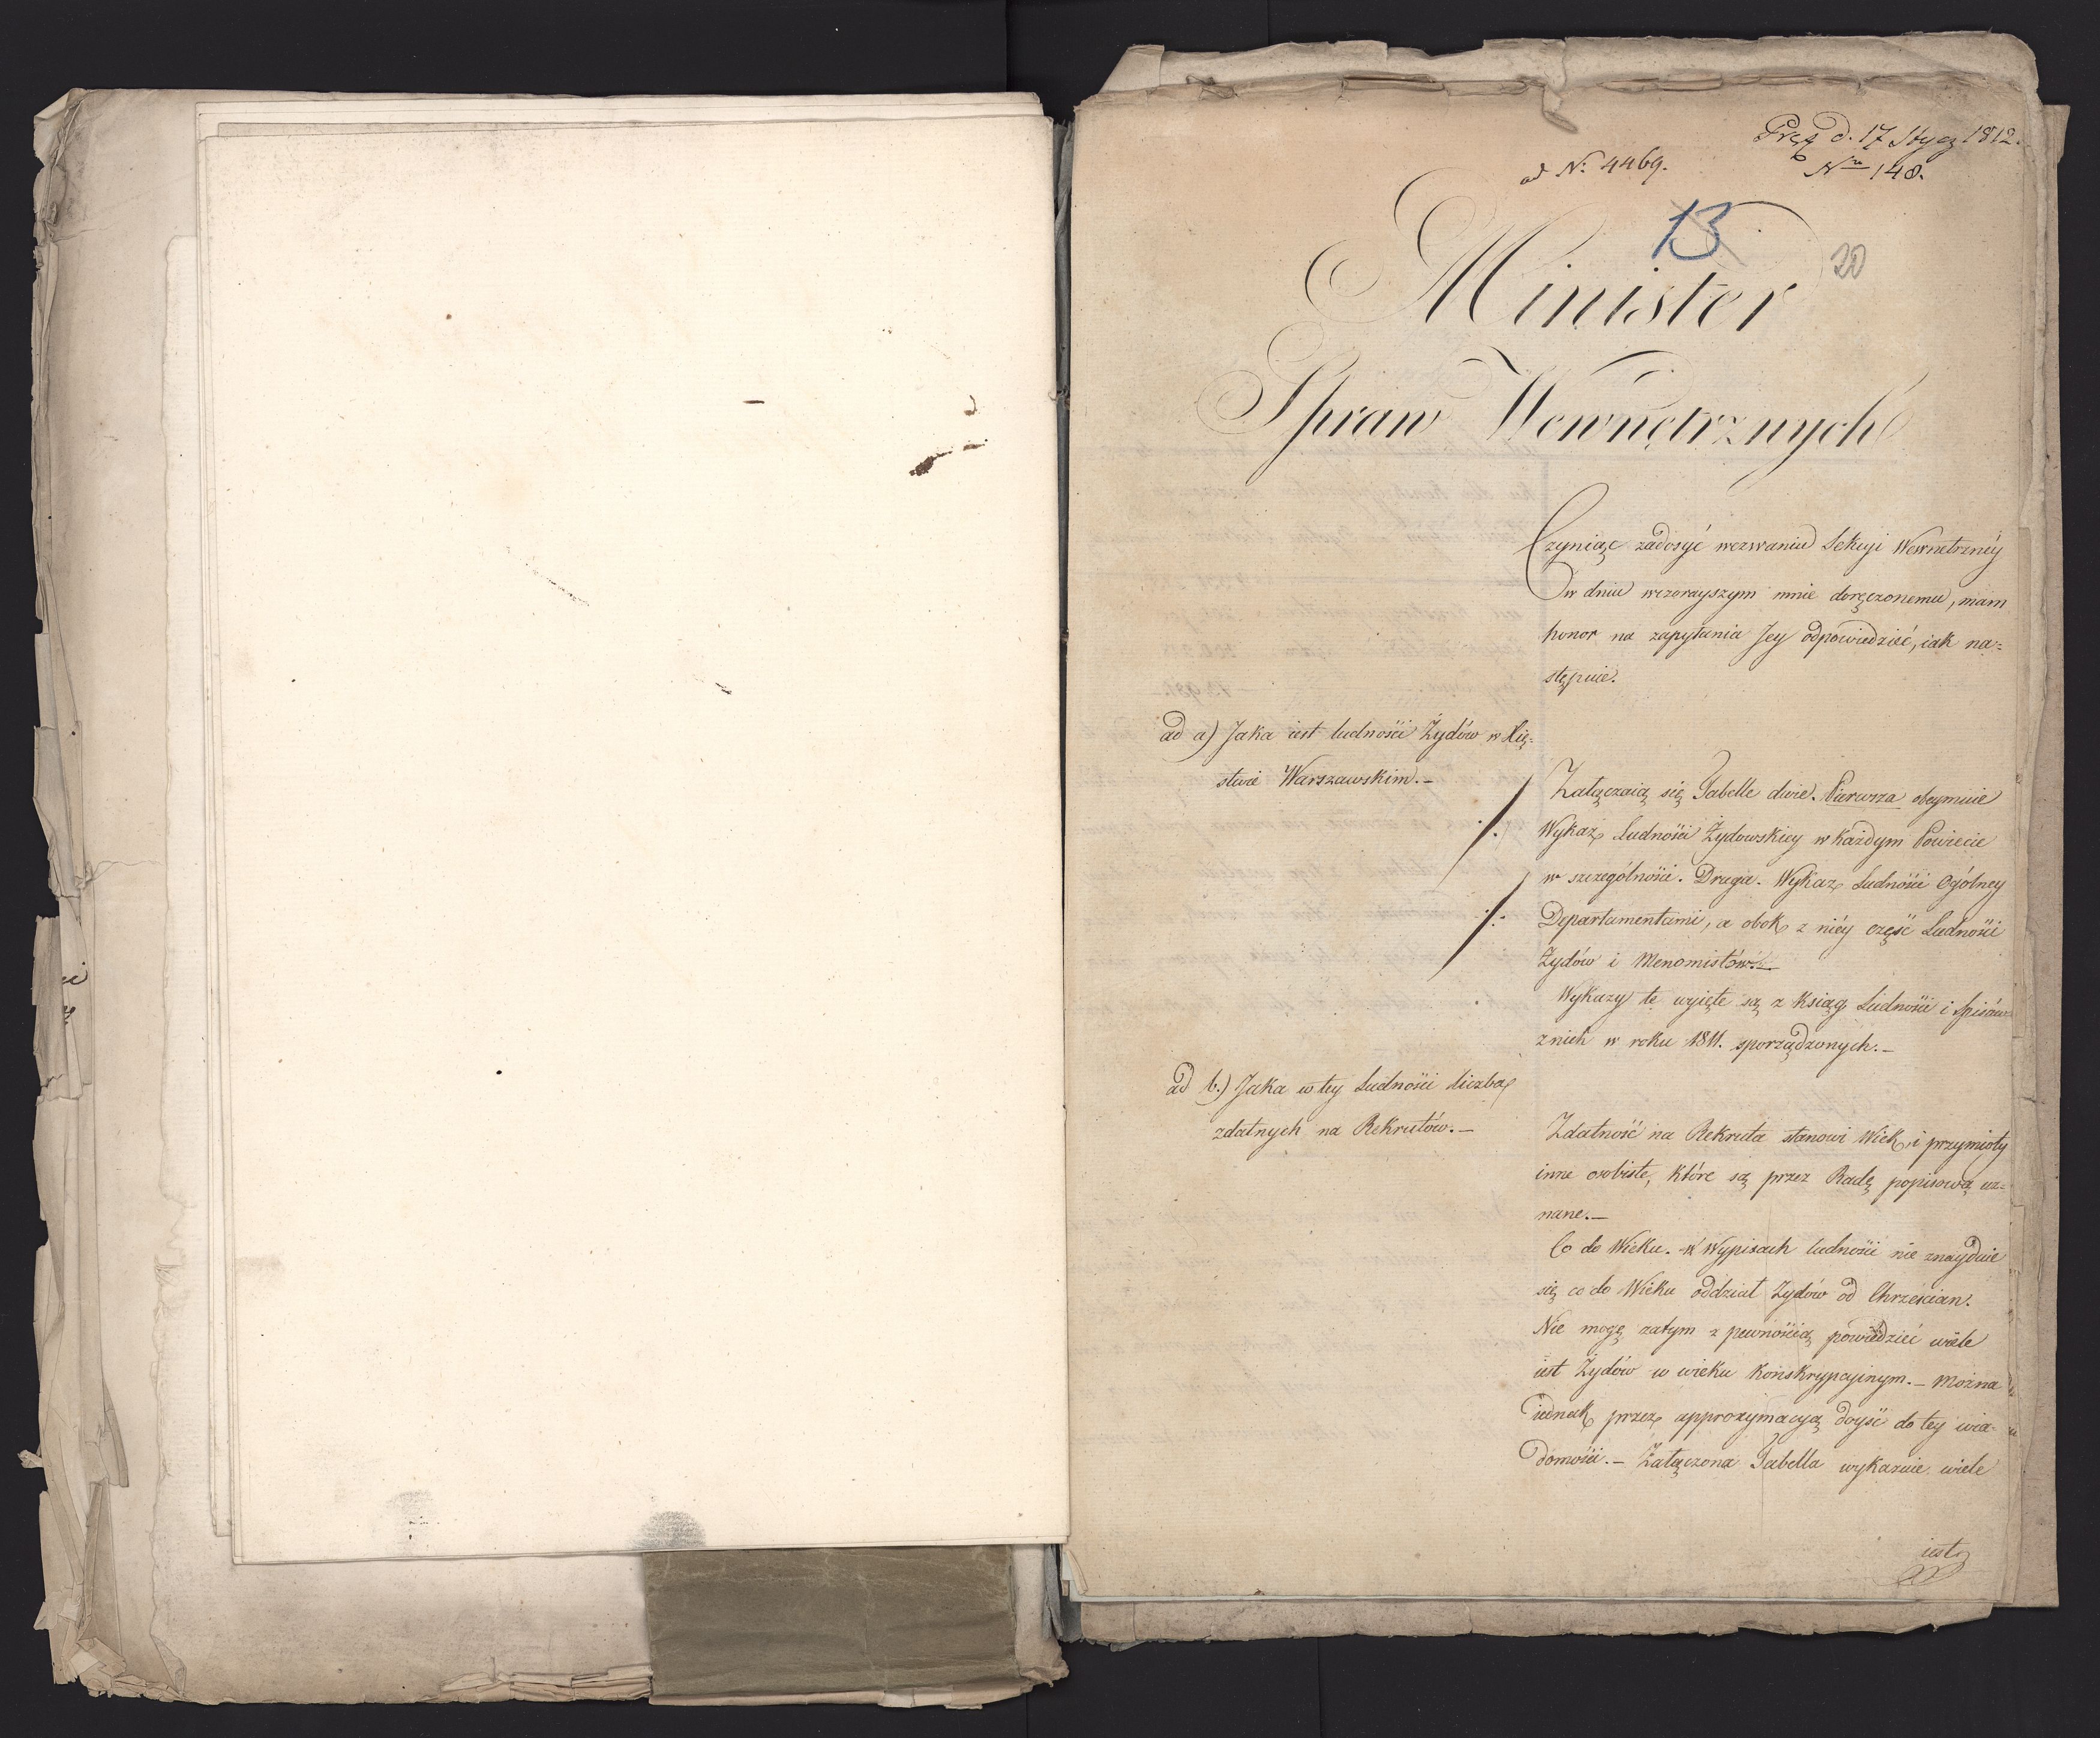 Prez d. 17 Stycz 1812.
ad N: 4469.
Nro 148.
13
20
Minister
Spraw Wewnętrznych
Czyniąc zadosyć wezwaniu Sekcyi Wewnetrznéy
w dniu wczorayszym mnie doręczonemu, mam
honor na zapytania Jey odpowiedzieć, iak na=
stępuie.
ad a) Jaka iest ludności Żydów w Xię=
stwie Warszawskim.—
Załączaią się Tabelle dwie. Pierwsza obeymuie
Wykaz Ludności Żydowskiey w każdym Powiecie
w szczególności. Druga. Wykaz Ludności Ogólney
Departamentami, a obok z niéy część Ludności
Żydów i Menonistów.—
Wykazy te wyięte są z Ksiąg Ludności i Spisów
znich w roku 1811. sporządzonych.—
ad b.) Jaka w tey Ludności liczba
zdatnych na Rekrutów.—
Zdatność na Rekruta stanowi Wiek, i przymioty
inne osobiste, które są przez Radę popisową uz=
nane.—
Co do Wieku. W Wypisach ludności nie znayduie
się co do Wieku oddział Żydów od Chrześcian.
Nie mogę zatym z pewnością powiedzieć wiele
iest Żydów w wieku Konskrypcyinym.— Można
iednak przez approxymacyą doyść do tey wia-
domości.— Załączona Tabella wykazuie wiele
iest